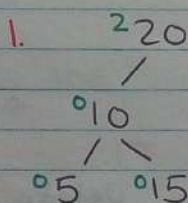 1. 2 20
0 10
0 5 0 15